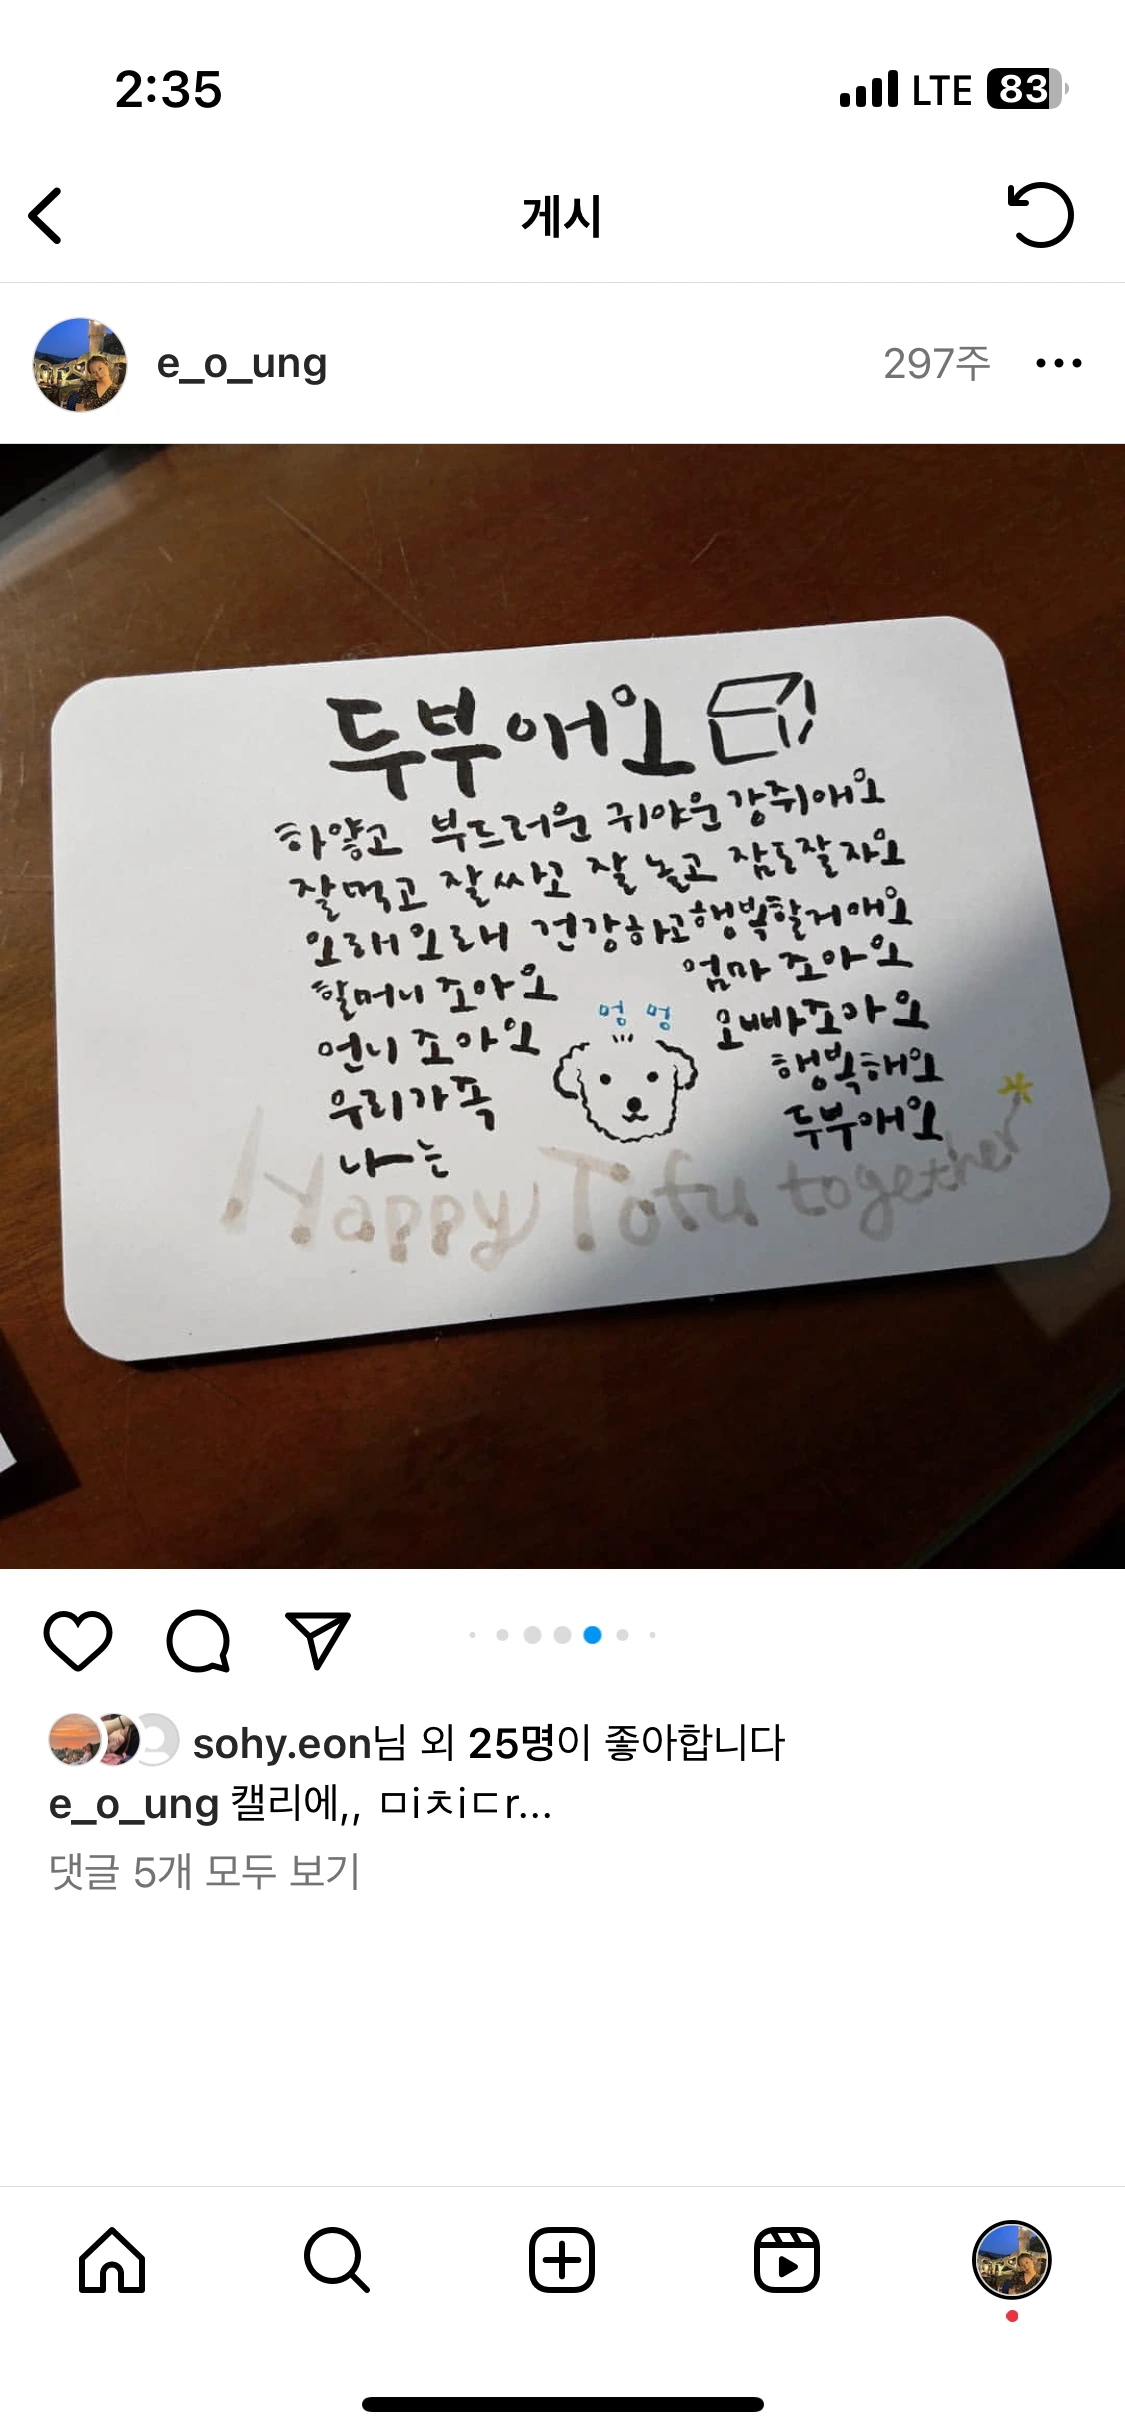 2:35 LTE 83
게시
e_o_ung 297주
두부애오
하얗고 부드러운 귀야운 강쥐애오
잘먹고 잘싸고 잘놀고 잠도잘자오
오래오래 건강하고행복할거애오
할머니 조아오 엄마 조아오
멍 멍
언니 조아오 오빠조아오
우리가족 행복해오
나는 두부애오
Happy Tofu together
sohy.eon님 외 25명이 좋아합니다
e_o_ung 캘리에,, ㅁiㅊiㄷr...
댓글 5개 모두 보기